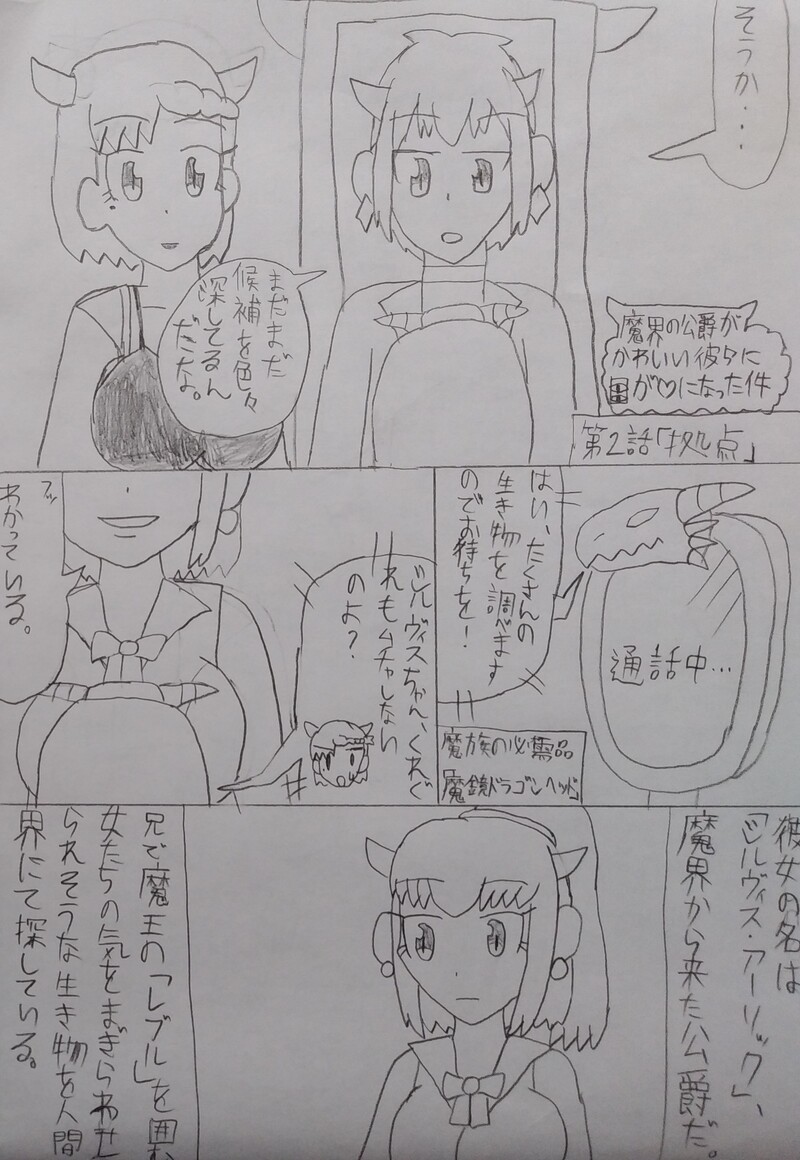 そうか・・・
まだまだ
候補を色々
探してるん
だなよ。
魔界の公爵が
かわいい彼女に
目が♡になった件
第2話「拠点」
はい、たくさんの
生き物を調べます
のでお待ちを!
通話中…
魔族の必需品
「魔鏡ドラゴンヘッド」
シルヴィスちゃん、くれぐ
れもムチャしない
のよ?
フッ
わかっている。
彼女の名は
「シルヴィス・アーリック」、
魔界から来た公爵だ。
兄で魔王の「レブル」を囲む
女たちの気をまぎらわせ
られそうな生き物を人間
界にて探している。